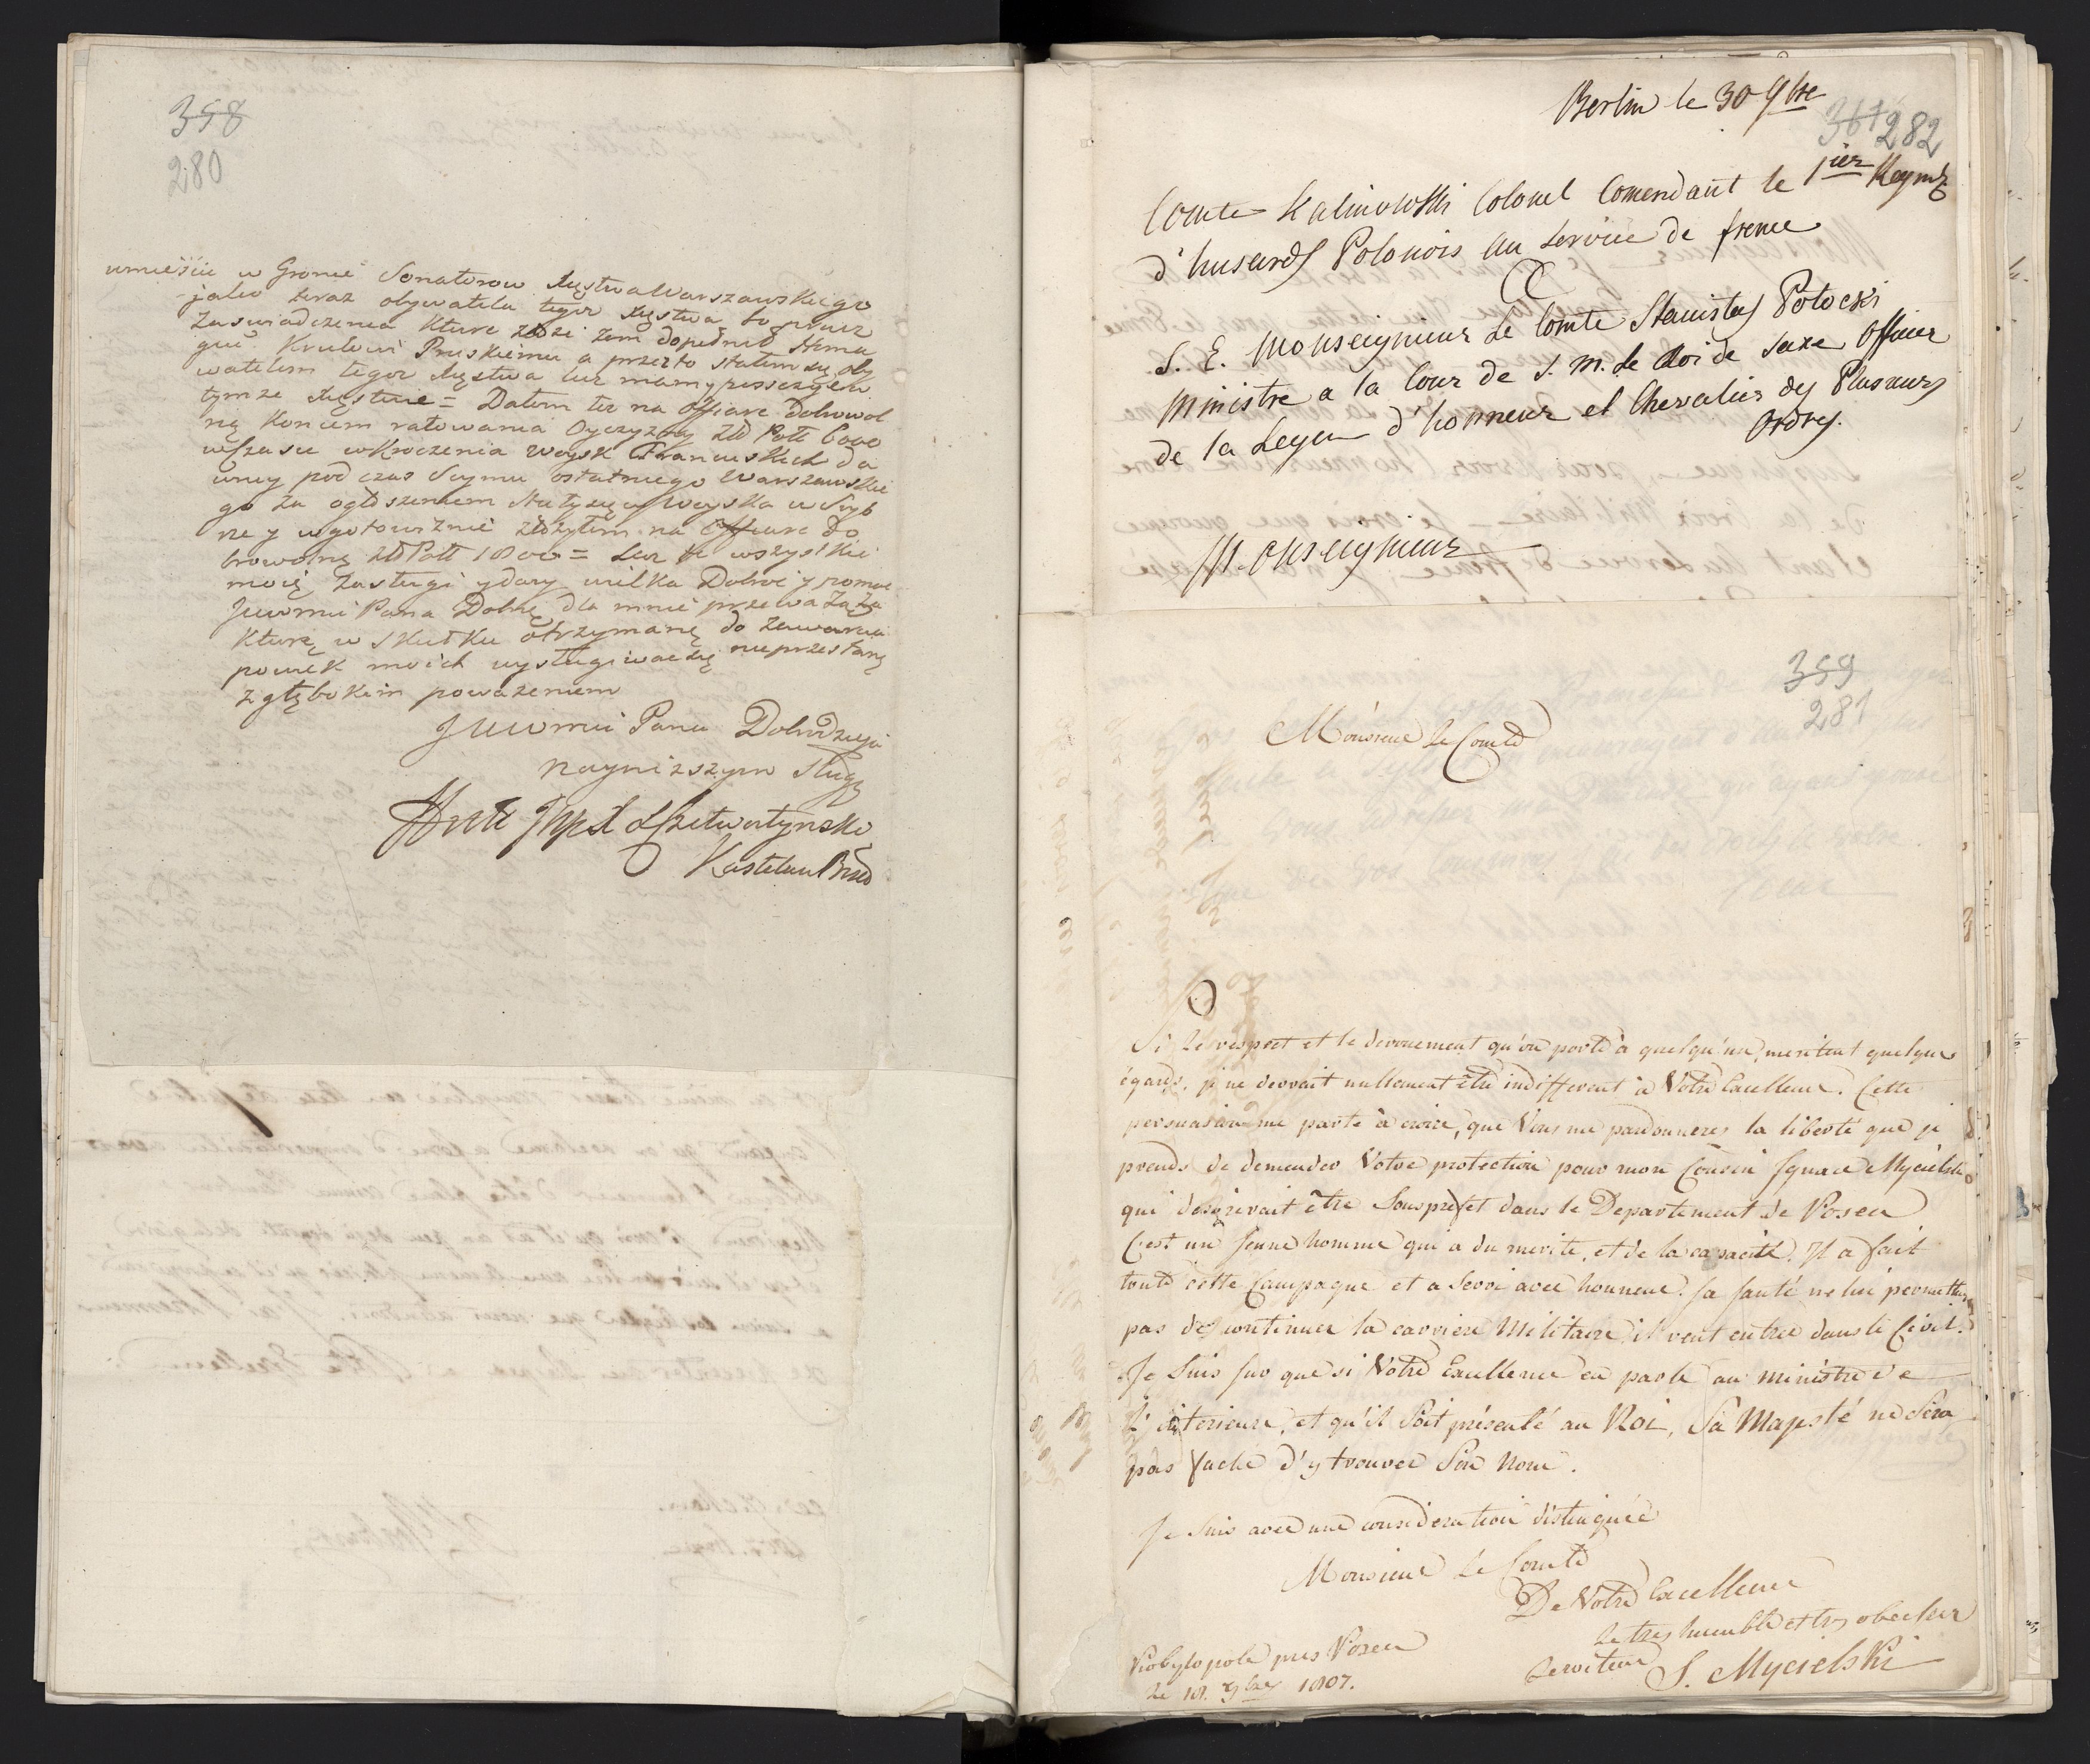 358
280
umieścić w Gronie Senatorow Xięstwa Warszawskiego
jako teraz obywatela tegoz Xięstwa to przez
Zaswiadczenia Które złoże żem dopełnił Homa
gui Krulowi Pruskiemu a przezto stałem się oby
watelem tegoz Xięstwa luz mam y possessyą w
tymze Xięstwie = Dałem tez na offiarę dobrowol
ną Koncem ratowania Oyczyzny Zło Pols 6000
w Czasie wkroczenia Woysk Francuskich da
wniey podczas Seymu ostatniego Warszawskie
go za ogłoszeniem Stutysięcy Woyska w Sryb
rze y w gotowiznie złożyłem na Offiarę do
browolną Zło Pols 18000 = Lecz te wszystkie
moie zasługi y dary wilka Dobroć y pomoc
Jwwmci Pana Dobrę dla mnie przewaza za
Kturą w skutku otrzymaną do zawarcia
powiek moich wysługiwać się nieprzestanę
z głębokim poważeniem
JWwmci Pana Dobrodzieja
nayniższym sługą
Czetwertynski
Kasztelan
Berlin le 30 9bre
361 282
Comte Kalinowski Colonel Comendant le 1ier Regmt
d'husards Polonois au service de france
S. E. Monseigneur Le Comte Stanislas Potocki
Ministre a la Cour de S. M. Le Roi de Saxe Officier
de la Legion d'honneur et Chevalier des Plusieurs
Ordres.
Monseigneur
359
281
Monsieur Le Comte
Si le respect et le devouement qu'on porte à quelqu'un, meritent quelques
égards, je ne devrait nullement être indifferent à Votre Excellence. Cette
persuasion me porte à croire, que Vous me pardonneres la liberté que je
prends de demender Votre protection pour mon Cousin Ignace Mycielski
qui desirerait être Sousprefet dans le Departement de Posen
C'est un Jeune homme qui a du merite, et de la capacité. Il a fait
toute cette Campagne et a Servi avec honneur. Sa Santé ne lui permettant
pas de continuer la carriere Militaire il veut entrer dans le Civil.
Je Suis sur que si Votre Excellence en parle au ministre de
L'interieure, et qu'il soit présenté au Roi, Sa Majesté ne Sera
pas faché d'y trouver Son Nom.
Je Suis avec une consideration distinguée
Monsieur Le Comte
De Votre Excellence
Le tres humble et tres obeissant
Serviteur S. Mycielski
Kobylopole pres Posen
Le 18. 9bre 1807.